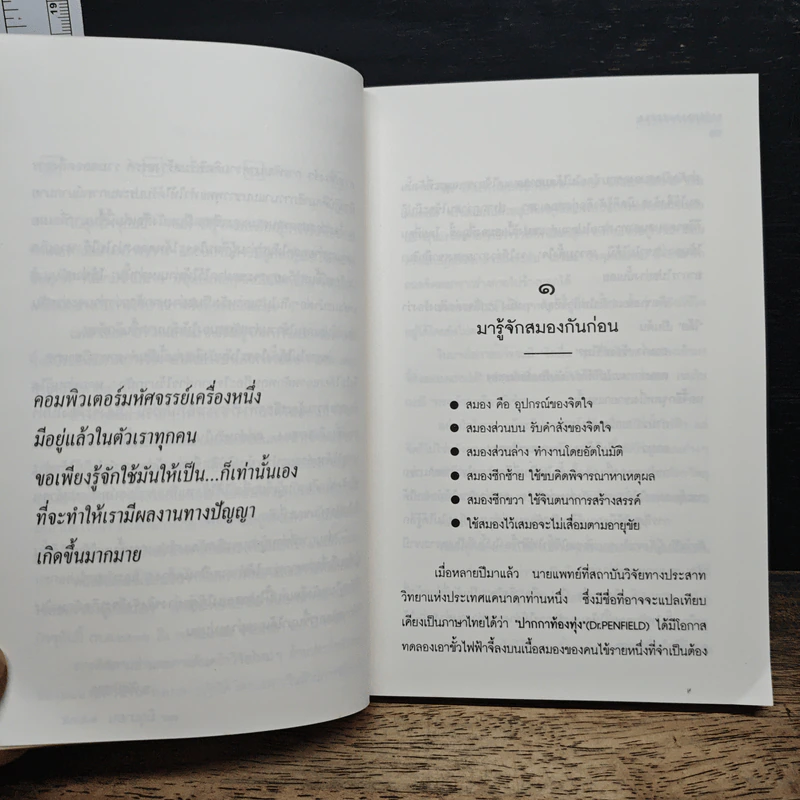 19
คอมพิวเตอร์มหัศจรรย์เครื่องหนึ่ง
มีอยู่แล้วในตัวเราทุกคน
ขอเพียงรู้จักใช้มันให้เป็น...ก็เท่านั้นเอง
ที่จะทำให้เรามีผลงานทางปัญญา
เกิดขึ้นมากมาย
๑
มารู้จักสมองกันก่อน
● สมอง คือ อุปกรณ์ของจิตใจ
● สมองส่วนบน รับคำสั่งของจิตใจ
● สมองส่วนล่าง ทำงานโดยอัตโนมัติ
● สมองซีกซ้าย ใช้ขบคิดพิจารณาหาเหตุผล
● สมองซีกขวา ใช้จินตนาการสร้างสรรค์
● ใช้สมองไว้เสมอจะไม่เสื่อมตามอายุขัย
เมื่อหลายปีมาแล้ว นายแพทย์ที่สถาบันวิจัยทางประสาท
วิทยาแห่งประเทศแคนาดาท่านหนึ่ง ซึ่งมีชื่อที่อาจจะแปลเทียบ
เคียงเป็นภาษาไทยได้ว่า "ปากกาท้องทุ่ง"(Dr.PENFIELD) ได้มีโอกาส
ทดลองเอาขั้วไฟฟ้าจี้ลงบนเนื้อสมองของคนไข้รายหนึ่งที่จำเป็นต้อง